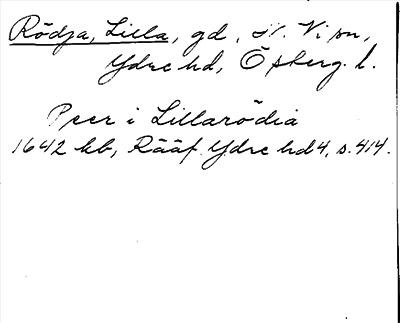 Rödja, Lilla, gd, N. Vi sn,
Ydre hd, Öpberg. l.
Peer i Lillarödia
1642 kb, Rääf Ydre hd 4, s. 414.